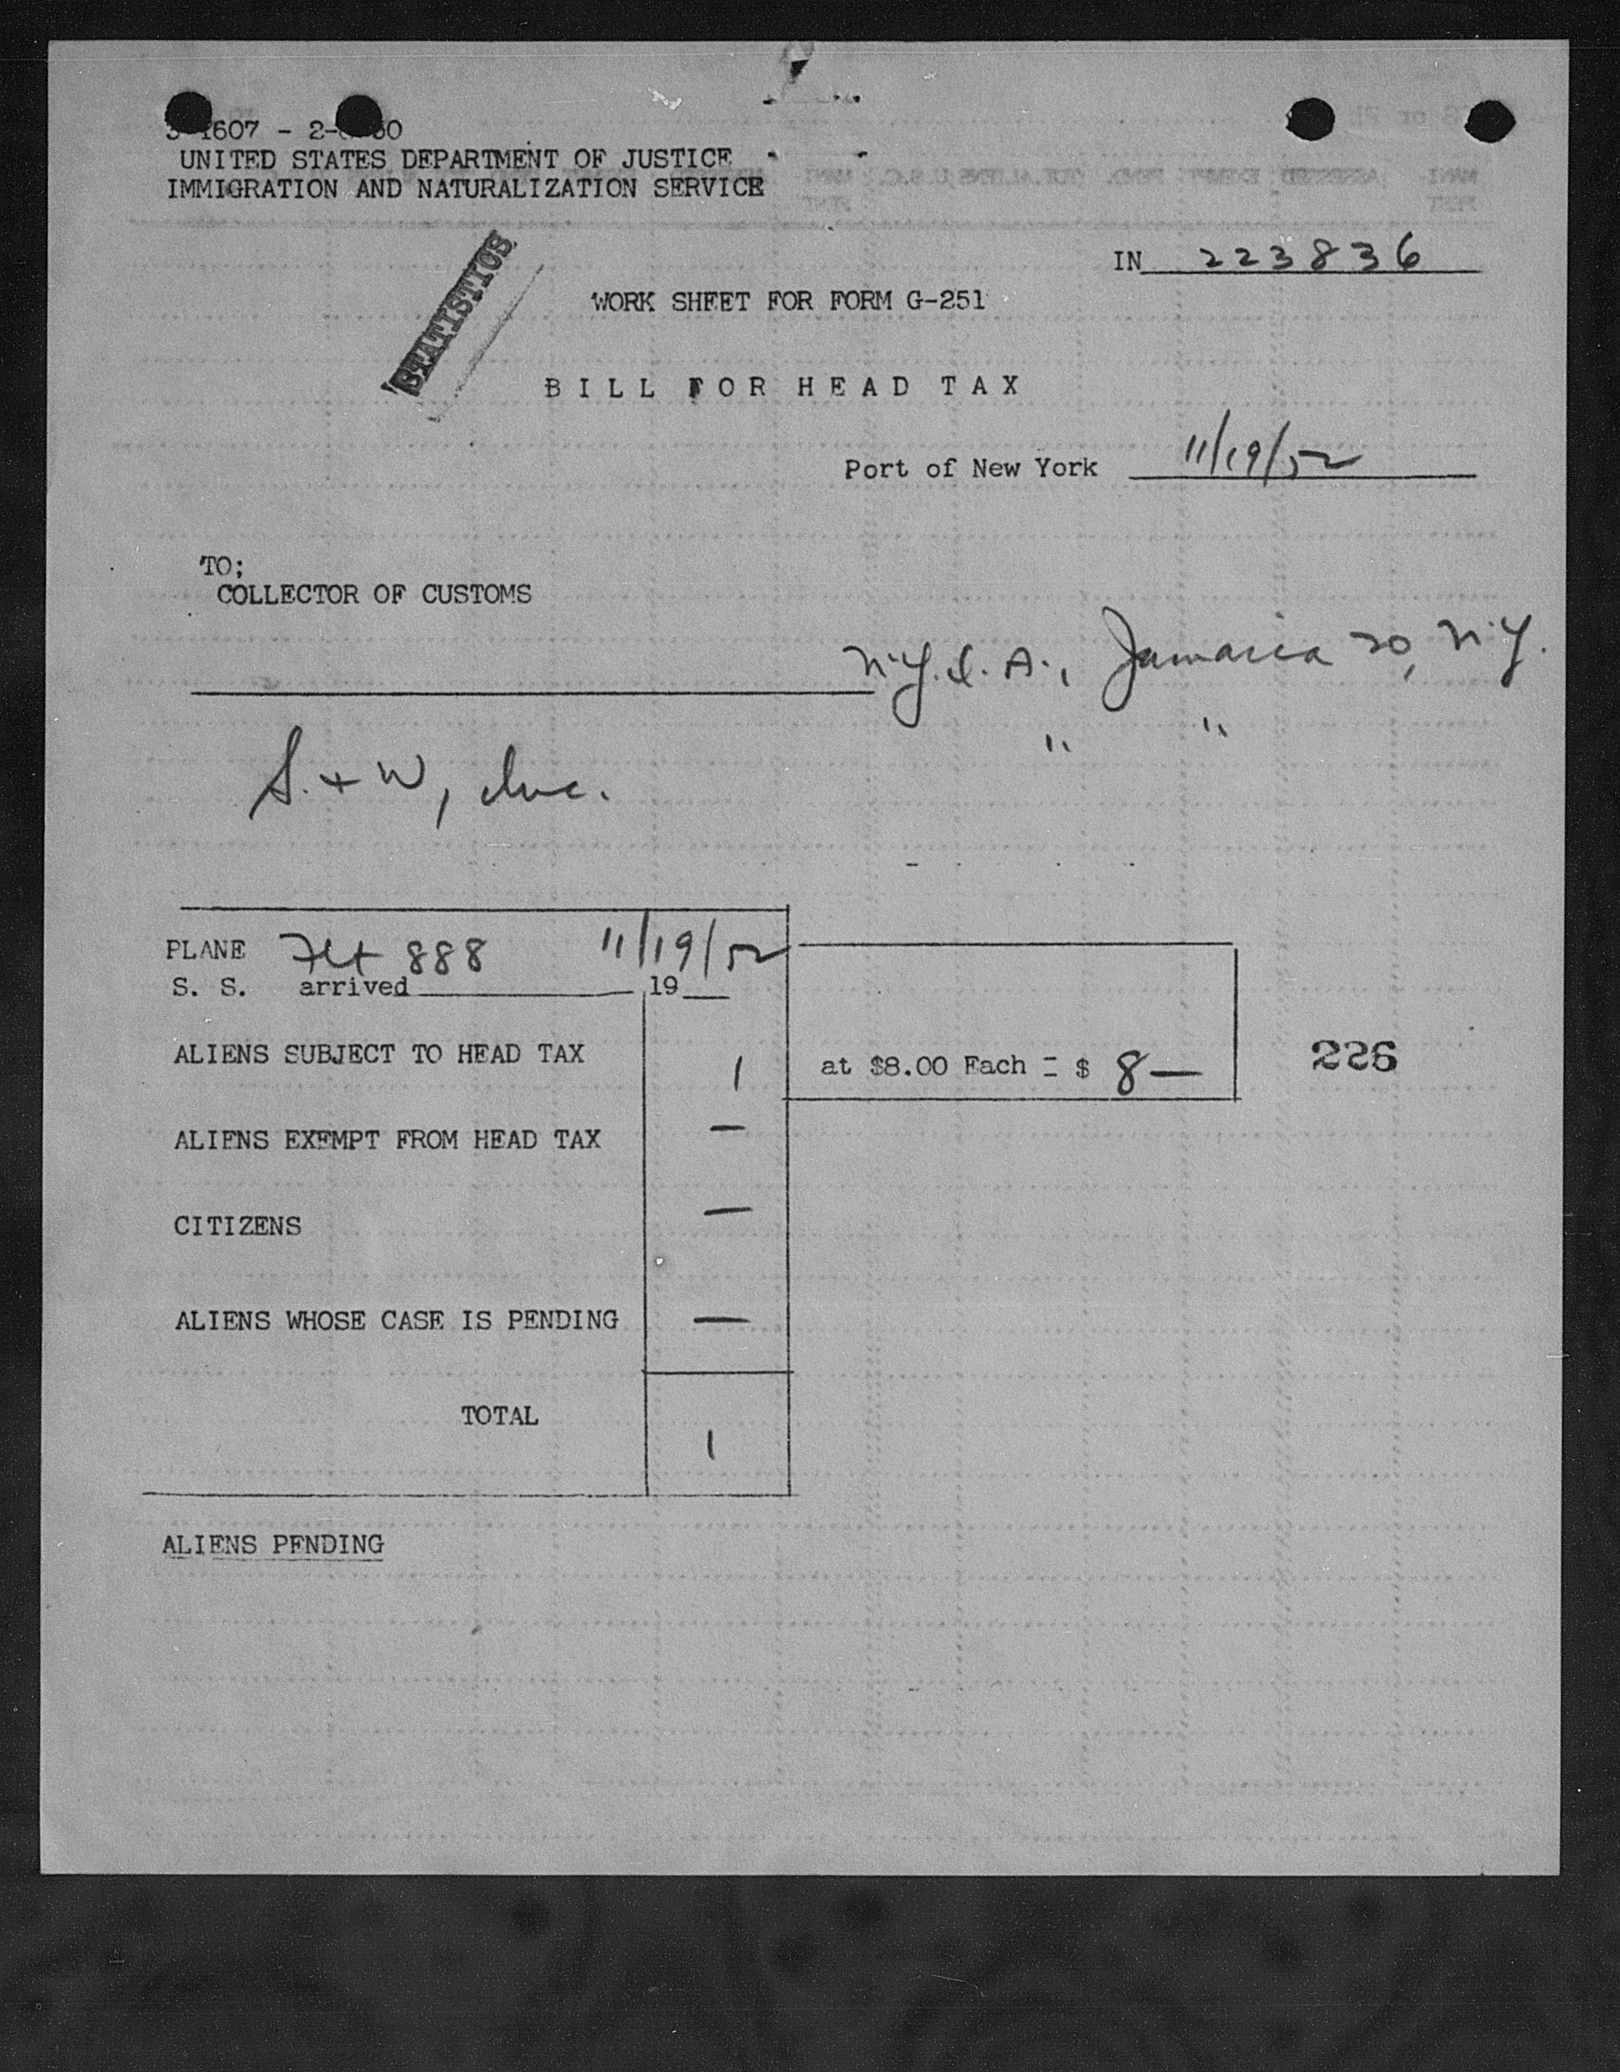 1607 - 2-
UNITED STATES DEPARTMENT OF JUSTICE
IMMIGRATION AND NATURALIZATION SERVICE
STATISTICS
IN 223836
WORK SHEET FOR FORM G-251
BILL FOR HEAD TAX
Port of New York 11/19/52
TO;
COLLECTOR OF CUSTOMS
N.Y.I.A., Jamaica 30, N.Y.
" "
S. + W, Inc.
PLANE Flt 888 11/19/52
S. S. arrived ,19
ALIENS SUBJECT TO HEAD TAX 1 at $8.00 Each = $ 8— 226
ALIENS EXEMPT FROM HEAD TAX —
CITIZENS —
ALIENS WHOSE CASE IS PENDING —
TOTAL 1
ALIENS PENDING